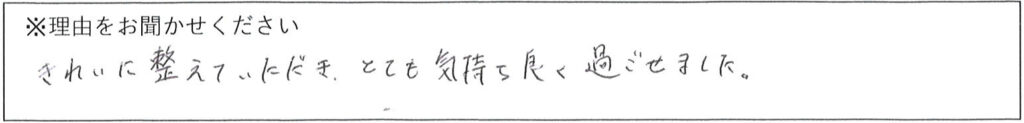 ※理由をお聞かせください
きれいに整えていただき、とても気持ち良く過ごせました。